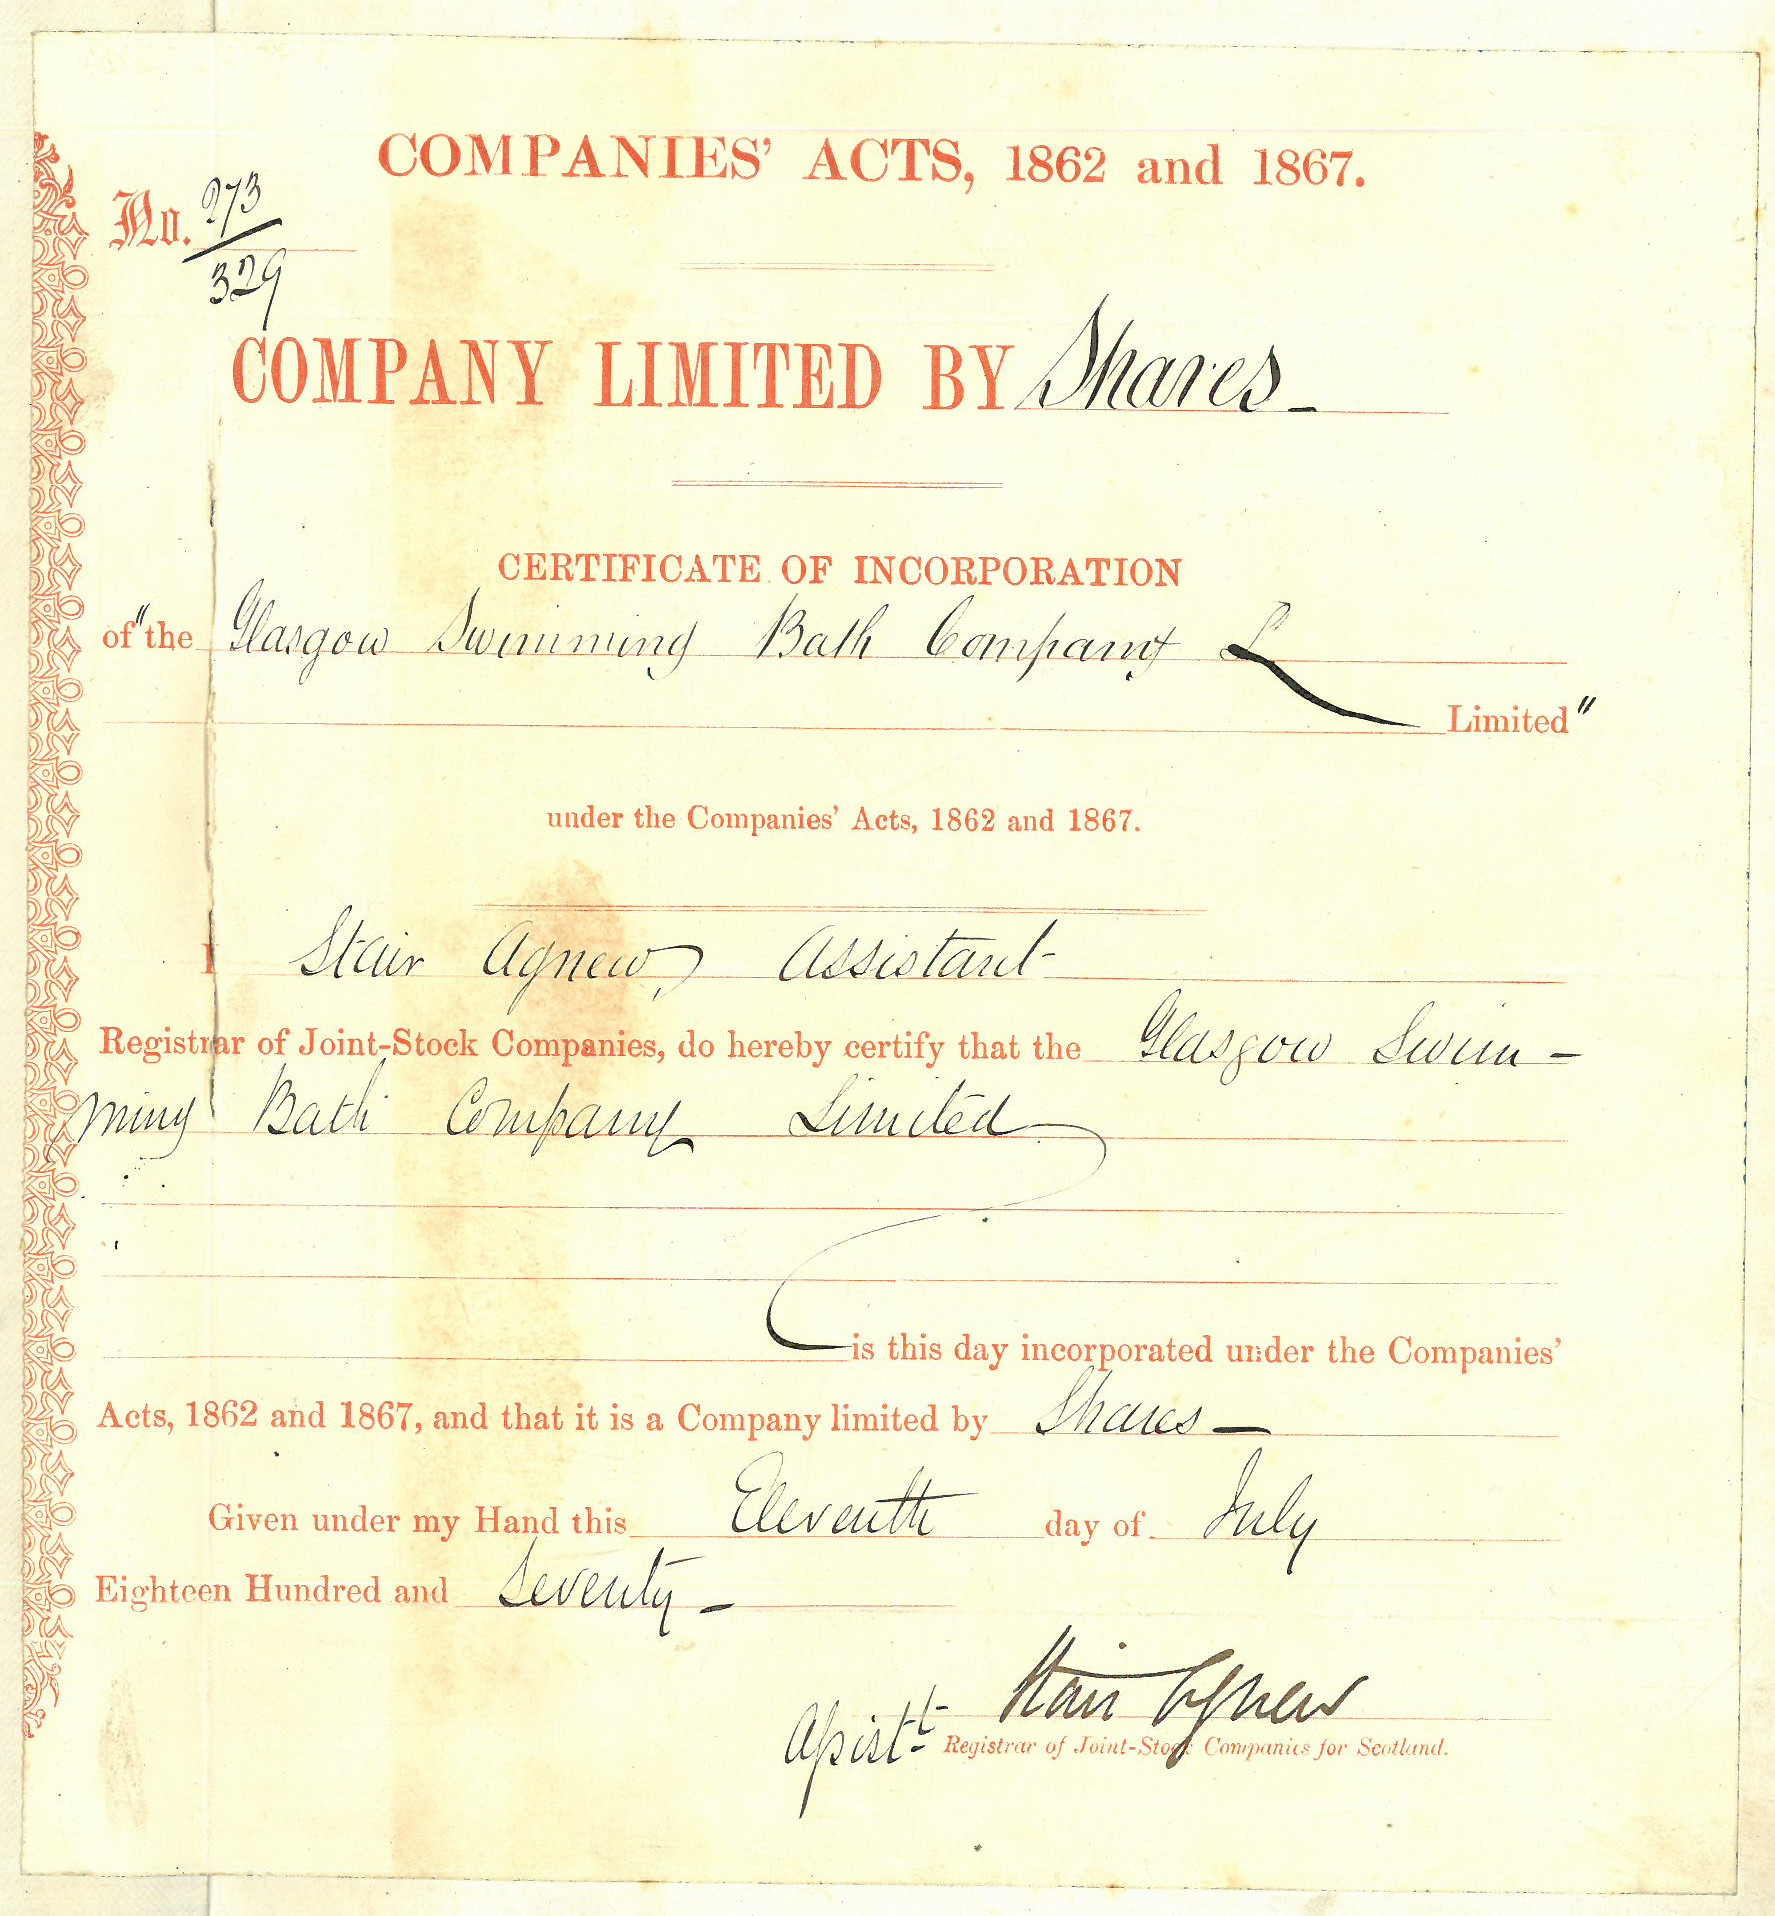 COMPANIES' ACTS, 1862 and 1867.
No. 273
329
COMPANY LIMITED BY Shares
CERTIFICATE OF INCORPORATION
of "the Glasgow Swimming Bath Company
Limited"
under the Companies' Acts, 1862 and 1867.
I Stair Agnew, Assistant
Registrar of Joint-Stock Companies, do hereby certify that the Glasgow Swim-
ming Bath Company Limited
is this day incorporated under the Companies'
Acts, 1862 and 1867, and that it is a Company limited by Shares
Given under my Hand this Eleventh day of July
Eighteen Hundred and Seventy
Stair Agnew
Assistt Registrar of Joint-Stock Companies for Scotland.